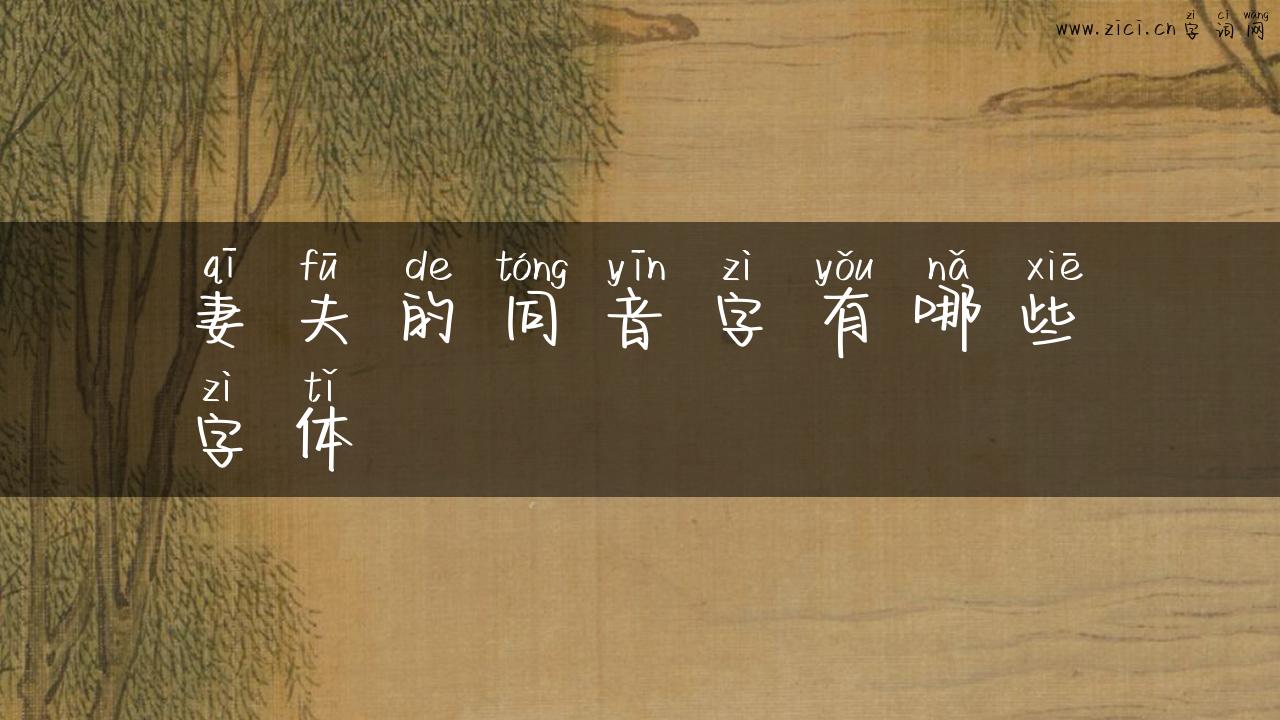 zì cí wǎng
www.zici.cn 字 词 网
qī fū de tóng yīn zì yǒu nǎ xiē
妻 夫 的 同 音 字 有 哪 些
zì tǐ
字 体